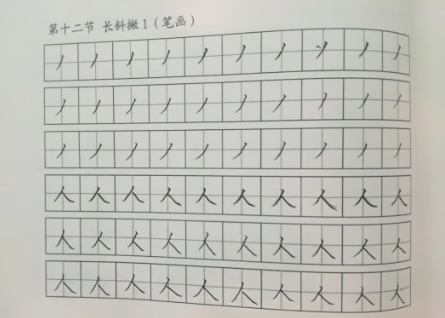 第十二节 长斜撇1（笔画）
丿丿丿丿丿丿丿丿丿丿
丿丿丿丿丿丿丿丿丿丿
丿丿丿丿丿丿丿丿丿丿
人人人人人人人人人人
人人人人人人人人人人
人人人人人人人人人人